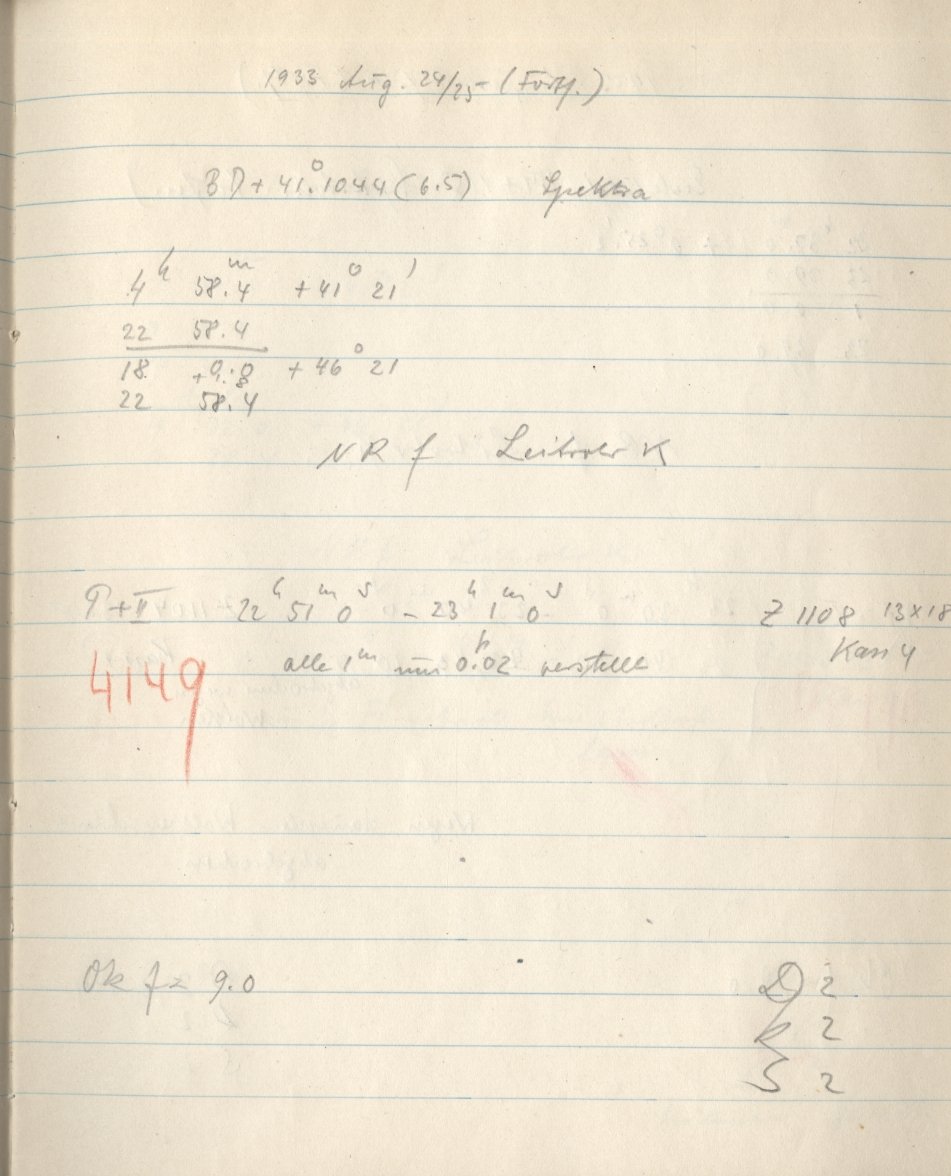 1933 Aug. 24/25 (Forts.)
BD + 41°.1044 (6.5) Spektra
4h 58m.4 +41° 21'
22 58.4
18 +0.8 +46° 21
22 58.4
NR f Leitrohr K
P + II 22h 51m 0s – 23h 1m 0s Z 1108 13x18
alle 1m um 0p.02 verstellt Kass 4
4149
Ok f = 9.0 D 2
R 2
S 2